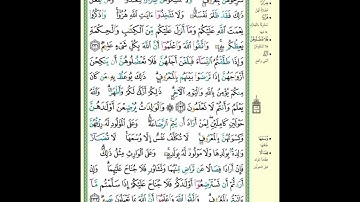 سَرِّحُوهُنَّ بِمَعْرُوفٍ وَلَا تُمْسِكُوهُنَّ ضِرَارًا لِّتَعْتَدُوا۟ وَمَن يَفْعَلْ
ذَٰلِكَ فَقَدْ ظَلَمَ نَفْسَهُۥ وَلَا تَتَّخِذُوٓا۟ ءَايَٰتِ ٱللَّهِ هُزُوًا وَٱذْكُرُوا۟
نِعْمَتَ ٱللَّهِ عَلَيْكُمْ وَمَآ أَنزَلَ عَلَيْكُم مِّنَ ٱلْكِتَٰبِ وَٱلْحِكْمَةِ
يَعِظُكُم بِهِۦ وَٱتَّقُوا۟ ٱللَّهَ وَٱعْلَمُوٓا۟ أَنَّ ٱللَّهَ بِكُلِّ شَىْءٍ عَلِيمٌ ٢٣١
وَإِذَا طَلَّقْتُمُ ٱلنِّسَآءَ فَبَلَغْنَ أَجَلَهُنَّ فَلَا تَعْضُلُوهُنَّ أَن يَنكِحْنَ
أَزْوَٰجَهُنَّ إِذَا تَرَٰضَوْا۟ بَيْنَهُم بِٱلْمَعْرُوفِ ذَٰلِكَ يُوعَظُ بِهِۦ مَن كَانَ
مِنكُمْ يُؤْمِنُ بِٱللَّهِ وَٱلْيَوْمِ ٱلْءَاخِرِ ذَٰلِكُمْ أَزْكَىٰ لَكُمْ وَأَطْهَرُ وَٱللَّهُ
يَعْلَمُ وَأَنتُمْ لَا تَعْلَمُونَ ٢٣٢ وَٱلْوَٰلِدَٰتُ يُرْضِعْنَ أَوْلَٰدَهُنَّ
حَوْلَيْنِ كَامِلَيْنِ لِمَنْ أَرَادَ أَن يُتِمَّ ٱلرَّضَاعَةَ وَعَلَى ٱلْمَوْلُودِ لَهُۥ رِزْقُهُنَّ
وَكِسْوَتُهُنَّ بِٱلْمَعْرُوفِ لَا تُكَلَّفُ نَفْسٌ إِلَّا وُسْعَهَا لَا تُضَآرَّ
وَٰلِدَةٌۢ بِوَلَدِهَا وَلَا مَوْلُودٌ لَّهُۥ بِوَلَدِهِۦ وَعَلَى ٱلْوَارِثِ مِثْلُ ذَٰلِكَ
فَإِنْ أَرَادَا فِصَالًا عَن تَرَاضٍ مِّنْهُمَا وَتَشَاوُرٍ فَلَا جُنَاحَ عَلَيْهِمَا وَإِنْ
أَرَدتُّمْ أَن تَسْتَرْضِعُوٓا۟ أَوْلَٰدَكُمْ فَلَا جُنَاحَ عَلَيْكُمْ إِذَا سَلَّمْتُم مَّآ